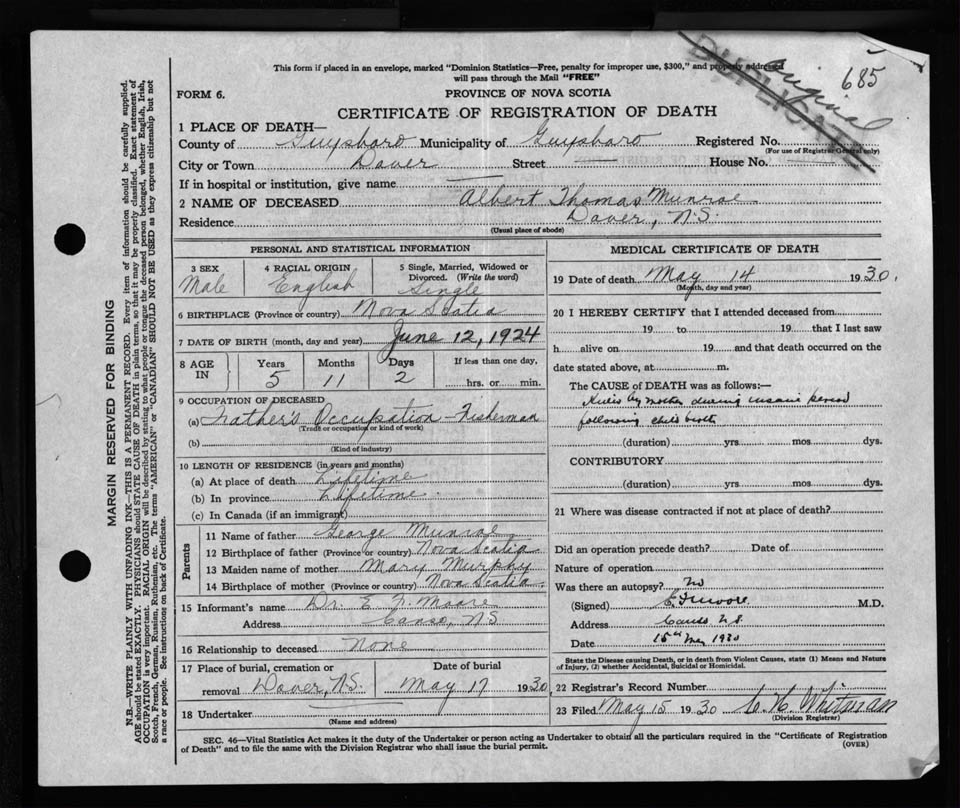 This form if placed in an envelope, marked "Dominion Statistics—Free, penalty for improper use, $300," and properly addressed
will pass through the Mail "FREE"
DUPLICATE
Original
685
FORM 6.
PROVINCE OF NOVA SCOTIA
CERTIFICATE OF REGISTRATION OF DEATH
1 PLACE OF DEATH—
County of Guysboro Municipality of Guysboro Registered No.
(For use of Registrar General only)
City or Town Dover Street — House No.
If in hospital or institution, give name —
2 NAME OF DECEASED Albert Thomas Munroe
Residence Dover, N.S.
(Usual place of abode)
PERSONAL AND STATISTICAL INFORMATION
3 SEX
Male
4 RACIAL ORIGIN
English
5 Single, Married, Widowed or
Divorced. (Write the word)
Single
6 BIRTHPLACE (Province or country) Nova Scotia
7 DATE OF BIRTH (month, day and year) June 12, 1924
8 AGE IN
Years Months Days If less than one day,
5 11 2 hrs. or min.
9 OCCUPATION OF DECEASED
(a) Father's Occupation - Fisherman
(Trade or occupation or kind of work)
(b)
(Kind of industry)
10 LENGTH OF RESIDENCE (in years and months)
(a) At place of death Lifetime
(b) In province Lifetime
(c) In Canada (if an immigrant)
Parents
11 Name of father George Munroe
12 Birthplace of father (Province or country) Nova Scotia
13 Maiden name of mother Mary Murphy
14 Birthplace of mother (Province or country) Nova Scotia
15 Informant's name Dr. E. F. Moore
Address Canso, N.S.
16 Relationship to deceased None
17 Place of burial, cremation or Date of burial
removal Dover, N.S. May 17 1930
18 Undertaker
(Name and address)
MEDICAL CERTIFICATE OF DEATH
19 Date of death May 14 1930.
(Month, day and year)
20 I HEREBY CERTIFY that I attended deceased from
19 to 19 that I last saw
h alive on 19 and that death occurred on the
date stated above, at m.
The CAUSE of DEATH was as follows:—
Killed by mother during insane period
following child birth
(duration) yrs. mos dys.
CONTRIBUTORY
(duration) yrs. mos dys.
21 Where was disease contracted if not at place of death?
Did an operation precede death? Date of
Nature of operation
Was there an autopsy? No
(Signed) E F Moore M.D.
Address Canso N.S.
Date 15th May 1930
State the Disease causing Death, or in death from Violent Causes, state (1) Means and Nature
of Injury, (2) whether Accidental, Suicidal or Homicidal.
22 Registrar's Record Number
23 Filed May 15 1930 C. H. Whitman
(Division Registrar)
SEC. 46—Vital Statistics Act makes it the duty of the Undertaker or person acting as Undertaker to obtain all the particulars required in the "Certificate of Registration
of Death" and to file the same with the Division Registrar who shall issue the burial permit.
(OVER)
MARGIN RESERVED FOR BINDING
N.B.—WRITE PLAINLY WITH UNFADING INK—THIS IS A PERMANENT RECORD. Every item of information should be carefully supplied.
AGE should be stated EXACTLY. PHYSICIANS should STATE CAUSE OF DEATH in plain terms, so that it may be properly classified. Exact statement of
OCCUPATION is very important. RACIAL ORIGIN will be described by stating to what people or tongue the deceased person belonged, whether English, Irish,
Scotch, French, German, Russian, Ruthenian, etc. The terms "AMERICAN" or "CANADIAN" SHOULD NOT BE USED as they express citizenship but not
a race or people. See instructions on back of Certificate.